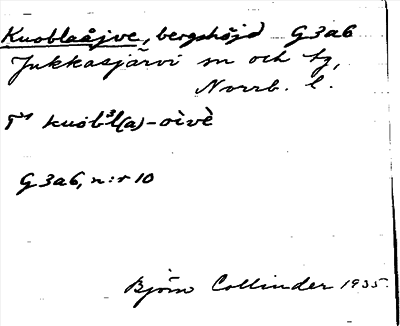 Kuoblaåjve, bergshöjd G3a6
Jukkasjärvi sn och tg,
Norrb. l.
kuobl(a)-oìvè
G3a6, n:r 10
Björn Collinder 1935.